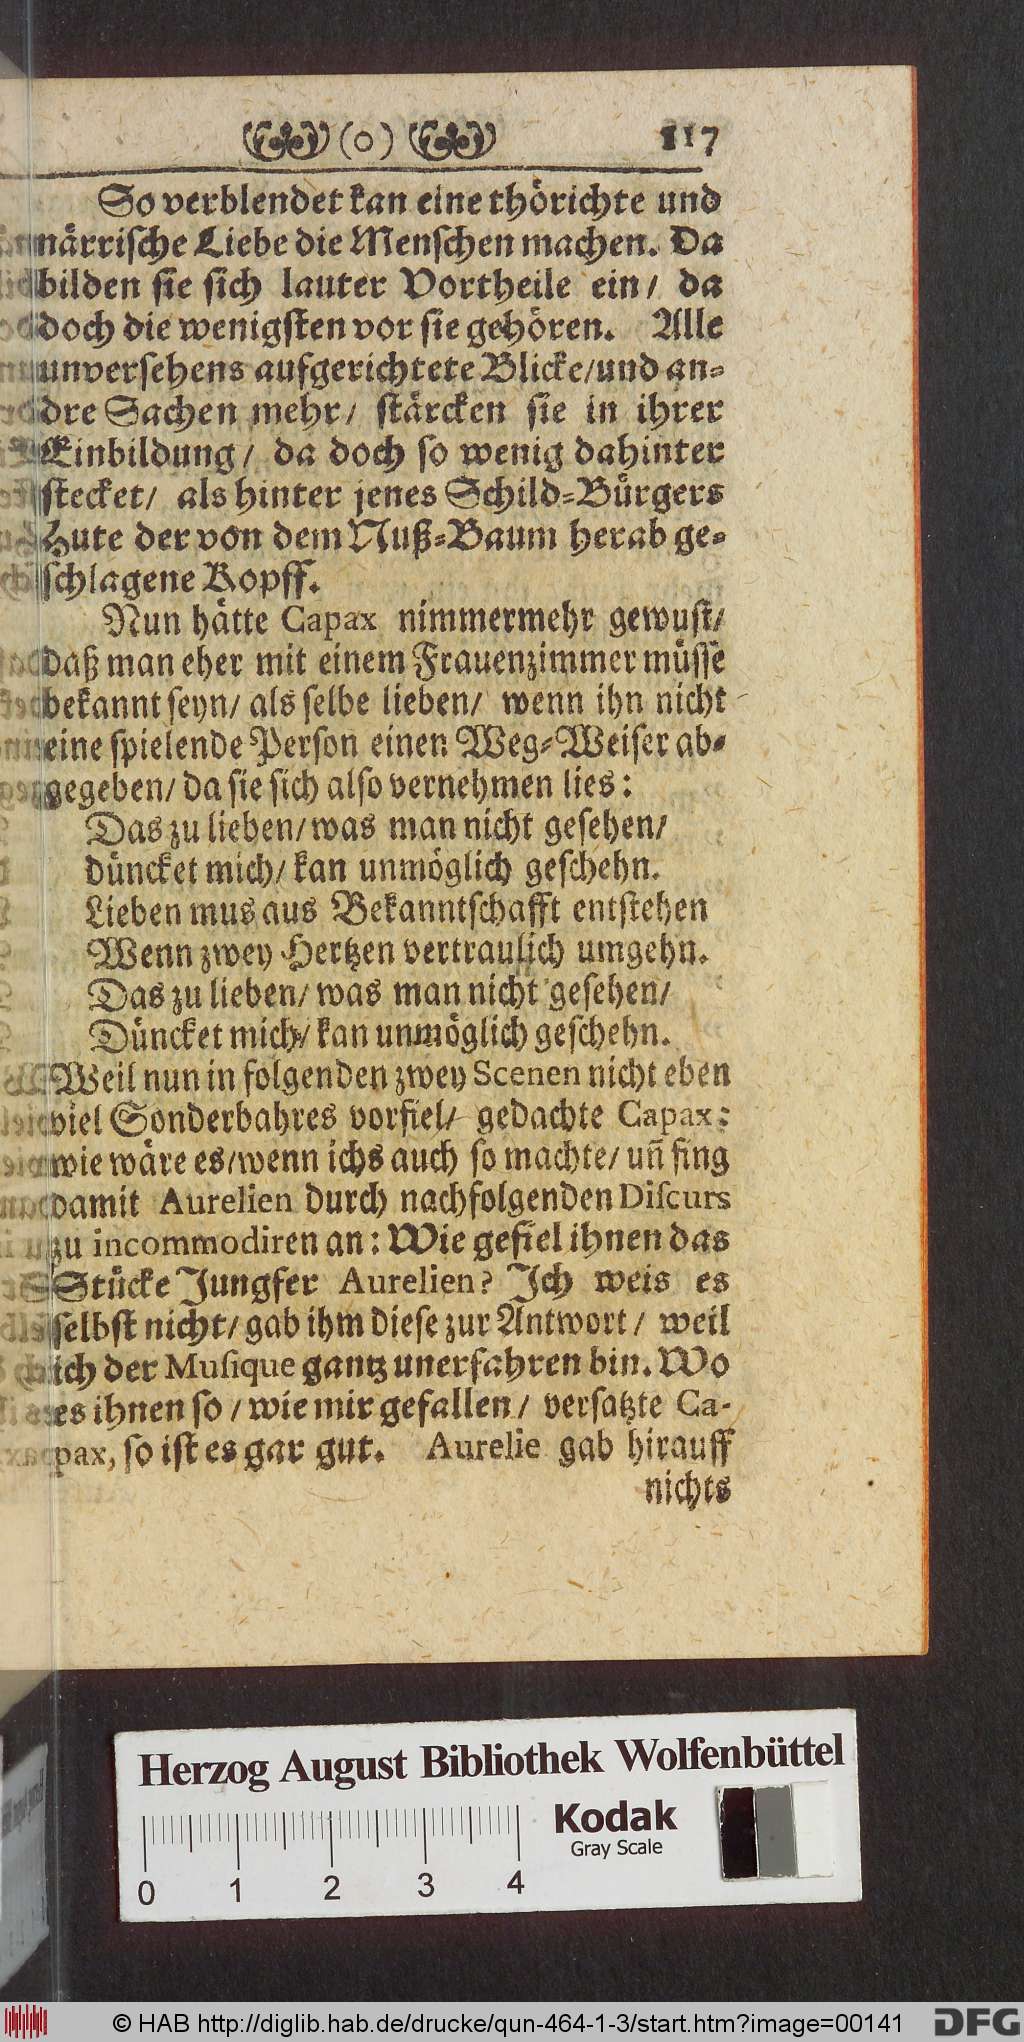 (o) 117
So verblendet kan eine thörichte und
närrische Liebe die Menschen machen. Da
bilden sie sich lauter Vortheile ein/ da
doch die wenigsten vor sie gehören. Alle
unversehens aufgerichtete Blicke/und an-
dre Sachen mehr/ stärcken sie in ihrer
Einbildung/ da doch so wenig dahinter
stecket/ als hinter jenes Schild-Bürgers
Hute der von dem Nuß-Baum herab ge-
schlagene Kopff.
Nun hätte Capax nimmermehr gewust/
daß man eher mit einem Frauenzimmer müsse
bekannt seyn/ als selbe lieben/ wenn ihn nicht
eine spielende Person einen Weg-Weiser ab-
gegeben/ da sie sich also vernehmen lies:
Das zu lieben/was man nicht gesehen/
düncket mich/ kan unmöglich geschehn.
Lieben mus aus Bekanntschafft entstehen
Wenn zwey Hertzen vertraulich umgehn.
Das zu lieben/ was man nicht gesehen/
Düncket mich/ kan unmöglich geschehn.
Weil nun in folgenden zwey Scenen nicht eben
viel Sonderbahres vorfiel/ gedachte Capax:
wie wäre es/wenn ichs auch so machte/ uñ fing
damit Aurelien durch nachfolgenden Discurs
zu incommodiren an: Wie gefiel ihnen das
Stücke Jungfer Aurelien? Ich weis es
selbst nicht/ gab ihm diese zur Antwort/ weil
ich der Musique gantz unerfahren bin. Wo
es ihnen so/ wie mir gefallen/ versatzte Ca-
pax, so ist es gar gut. Aurelie gab hirauff
nichts
Herzog August Bibliothek Wolfenbüttel
Kodak
Gray Scale
0 1 2 3 4
© HAB http://diglib.hab.de/drucke/qun-464-1-3/start.htm?image=00141
DFG